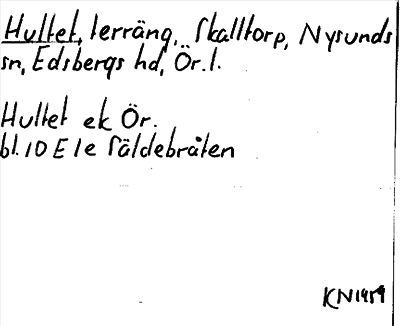 Hultet, terräng, Skalltorp, Nysunds
sn, Edsbergs hd, Ör. l.
Hultet ek Ör.
bl. 10 E 1e Säldebråten
KN 1959